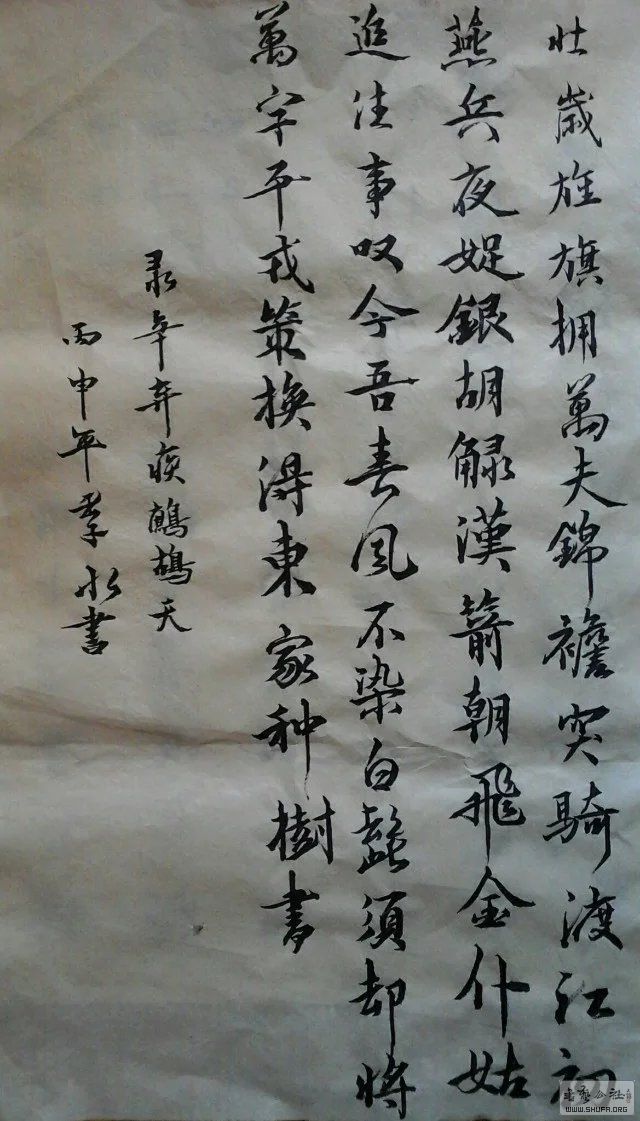 壮歲旌旗拥萬夫錦襜突騎渡江初
燕兵夜娖銀胡觮漢箭朝飛金仆姑
追往事叹今吾春风不染白髭須却将
萬字平戎策换得東家种樹書
录辛弃疾鷓鴣天
丙申年孝水書
書法公社
WWW.SHUFA.ORG